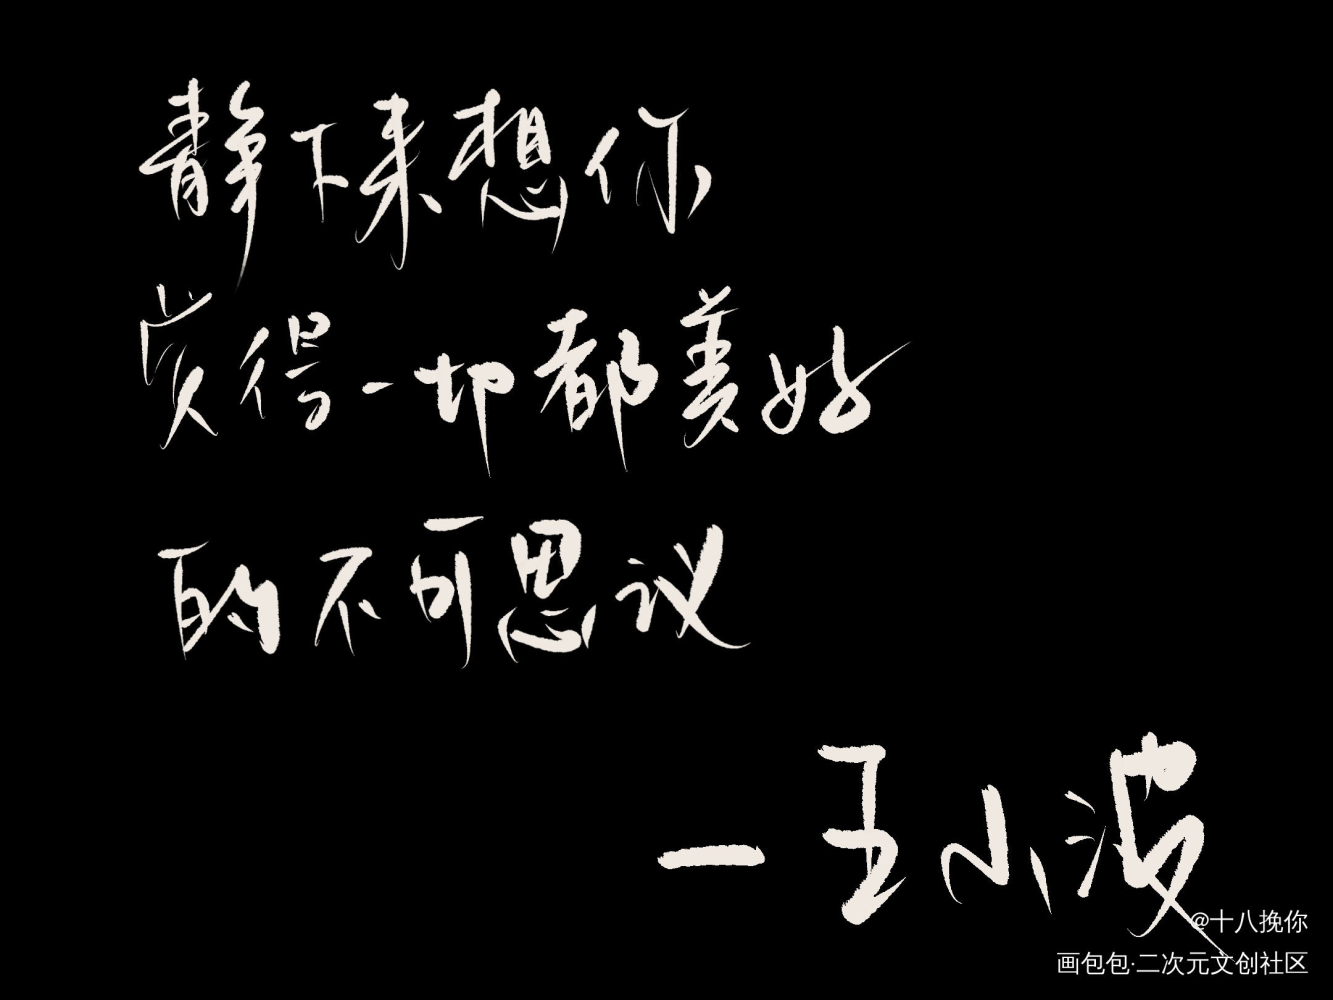 静下来想你
觉得一切都美好
的不可思议
—王小波
@十八挽你
画包包·二次元文创社区